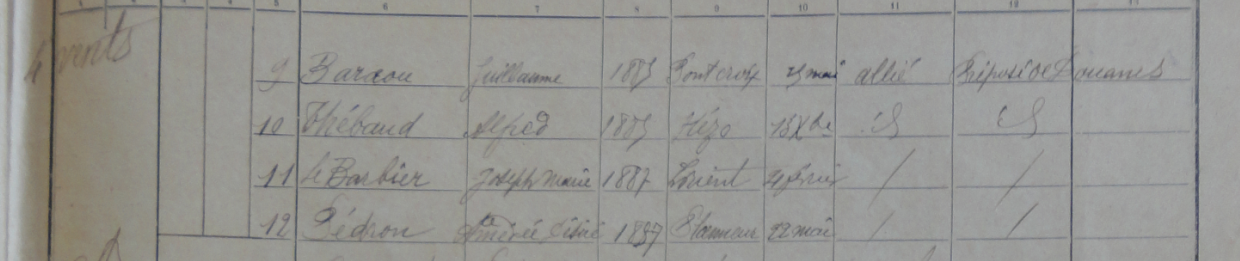 5 6 7 8 9 10 11 12 13
4 vents
9 Baraou Guillaume 1885 Pontcroix mai allié Préposé de Douanes
10 Thébaud Alfred 1885 Hézo 15 Xbre id id
11 Le Barbier Joseph Marie 1887 Lorient février / /
12 Pédron 1897 22 mai / /